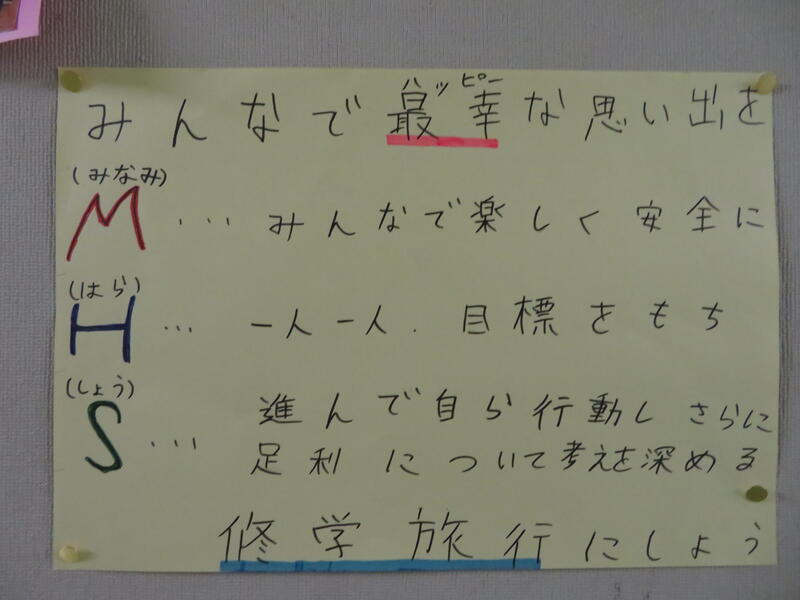 ハッピー
みんなで最幸な思い出を
(みなみ)
M... みんなで楽しく安全に
(はら)
H... 一人一人.目標をもち
(しょう)
S... 進んで自ら行動しさらに
足利について考えを深める
修学旅行にしよう